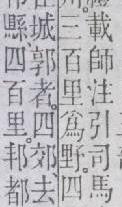 載師注引司馬
三百里爲野四
城郭者四郊去
縣四百里邦都